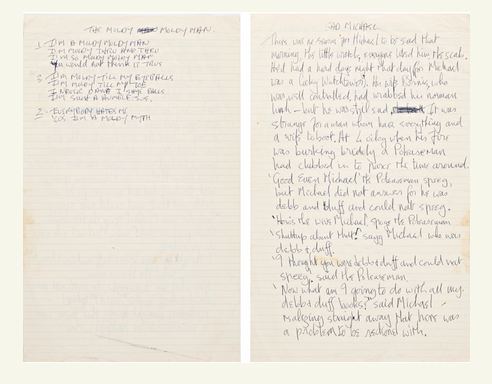 THE MOLDY MOLDY MAN.
1. I'M A MOLDY MOLDY MAN
I'M MOLDY THRU AND THRU
I'M A MOLDY MOLDY MAN
YOU WOULD NOT THINK IT TRUE
3. I'M MOLDY TILL MY EYEBALLS
I'M MOLDY TILL MY TOE
I WILL NOT DANCE I SHYBALLS
I'M SUCH A HUMBLE JOE.
2.
COS I'M A MOLDY MYTH
SAD MICHAEL
There was no reason for Michael to be sad that
morning (the little wretch), everyone liked him the scab.
He'd had a hard days night that day for Michael
was a Cocky Watchtower. His wife Bernie, who
was well controlled, had wrabbed his norman
lunch - but he was still sad. It was
strange for a man whom have everything and
a wife to boot. At 4 o'clog when his fire
was burking bridely a Poleaseman
had clubbed in to parse the time around.
'Good Evem Michael' the Poleaseman speeg,
but Michael did not answer for he was
debb and duff and could not speeg.
'How's the wive Michael' spoge the Poleaseman
'Shuttup about that!' Michael who was
debb & duff.
'I thought you were debb & duff and could not
speeg' said the Poleaseman.
'Now what am I going to do with all my
debb & duff books?' said Michael -
realizing straight away that here was
a problem to be reckoned with.